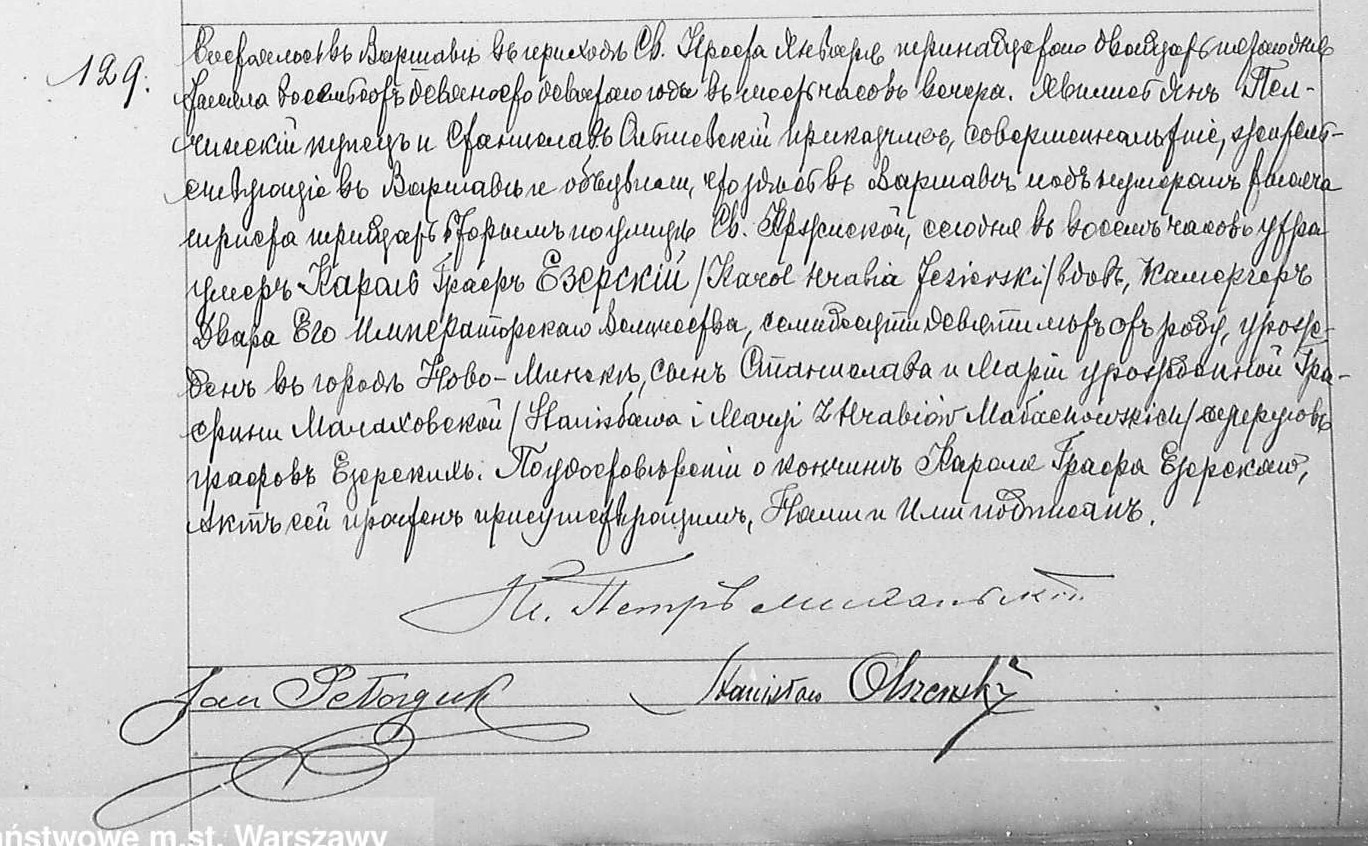 129.
Состоялось въ Варшавѣ въ приходѣ Св. Креста Января тринадцатаго двадцать пятаго дня
тысяча восемьсотъ девяносто девятаго года въ шесть часовъ вечера. Явились Янъ
купецъ и Станиславъ прикащикъ, совершеннолѣтніе, жительст-
вующіе въ Варшавѣ и объявили, что здѣсь въ Варшавѣ подъ нумеромъ тысяча
триста тридцать вторымъ по улицѣ Св. Кружиской, сегодня въ восемь часовъ утра
умеръ Кароль Графъ Езерскій /Karol Hrabia Jezierski/ вдовъ, Камергеръ
Двора Его Императорскаго Величества, семидесяти девяти лѣтъ отъ роду, урож-
денъ въ городѣ Ново-Минскѣ, сынъ Станислава и Маріи урожденной Гра-
фини Малаховской /Stanisława i Maryi z Hrabiów Małachowskich/ супруговъ
графовъ Езерскихъ. По удостовѣреніи о кончинѣ Кароля Графа Езерскаго,
Актъ сей прочтенъ присутствующимъ, Нами и Ими подписанъ.
Петръ
Jan Stanisław
państwowe m.st. Warszawy